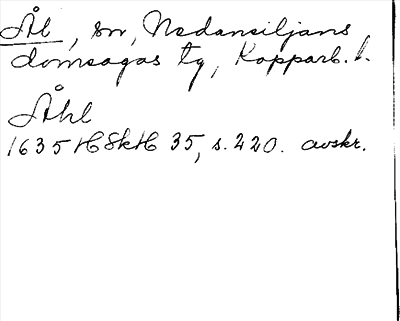 Ål, sn, Nedansiljans
domsagas tg, Kopparb. l.
Åhl
1635 HSkH 35, s. 220. avskr.